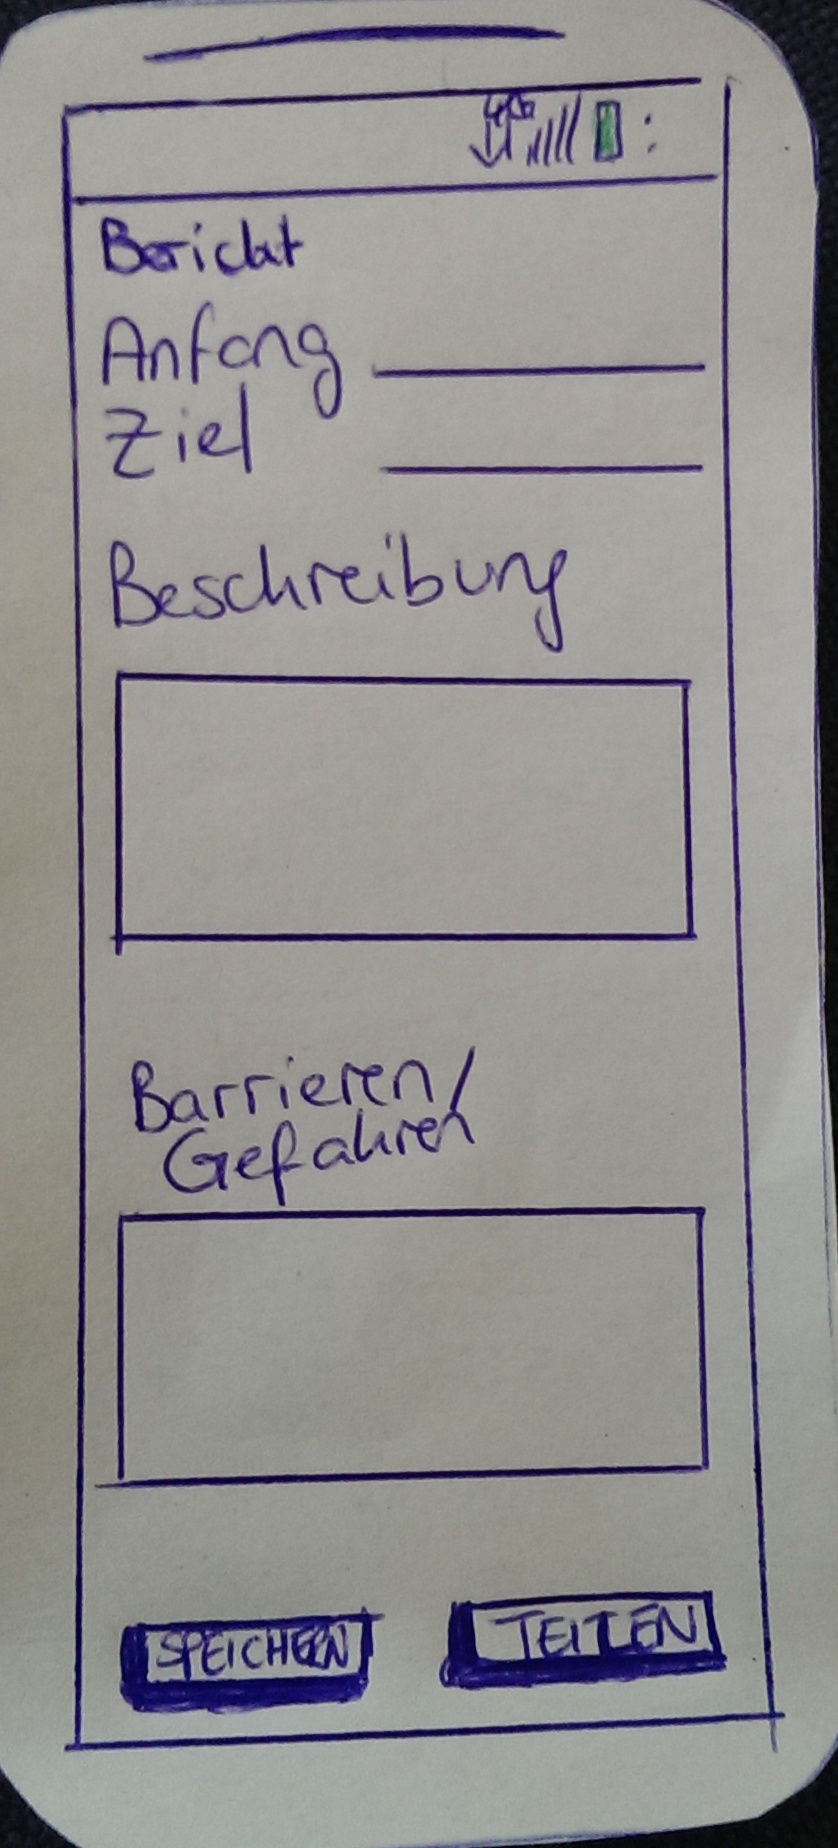 4G
Bericht
Anfang
Ziel
Beschreibung
Barrieren/
Gefahren
SPEICHERN
TEILEN